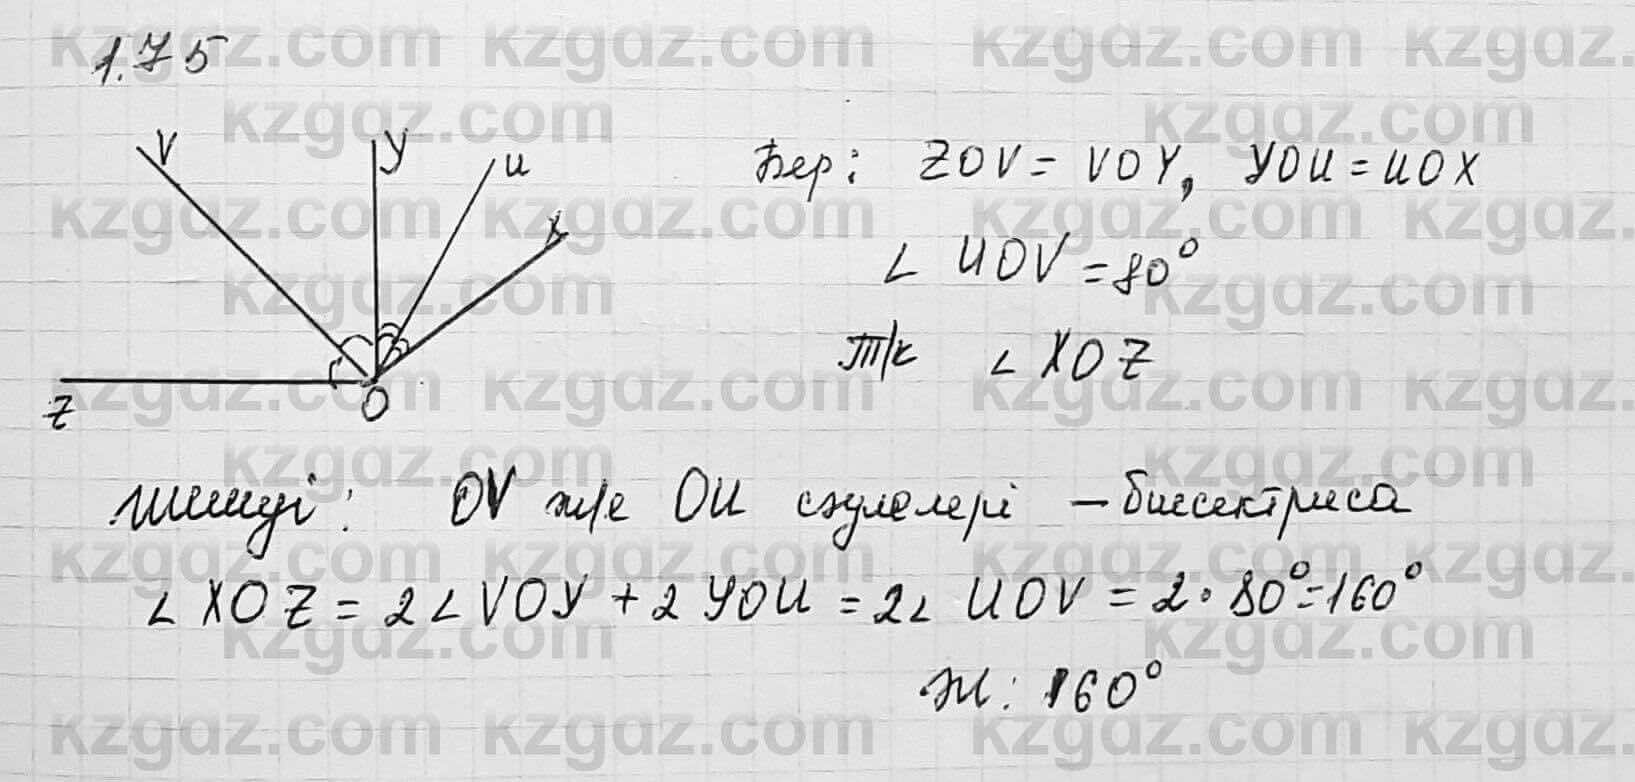 1.75
V
y
u
x
z
O
Бер: ZOV = VOY, YOU = UOX
∠ UOV = 80°
Т/к ∠ XOZ
Шешуі: OV ж/е OU сәулелері – биссектриса
∠ XOZ = 2∠ VOY + 2 YOU = 2∠ UOV = 2 · 80° = 160°
Ж: 160°
kzgdz.com